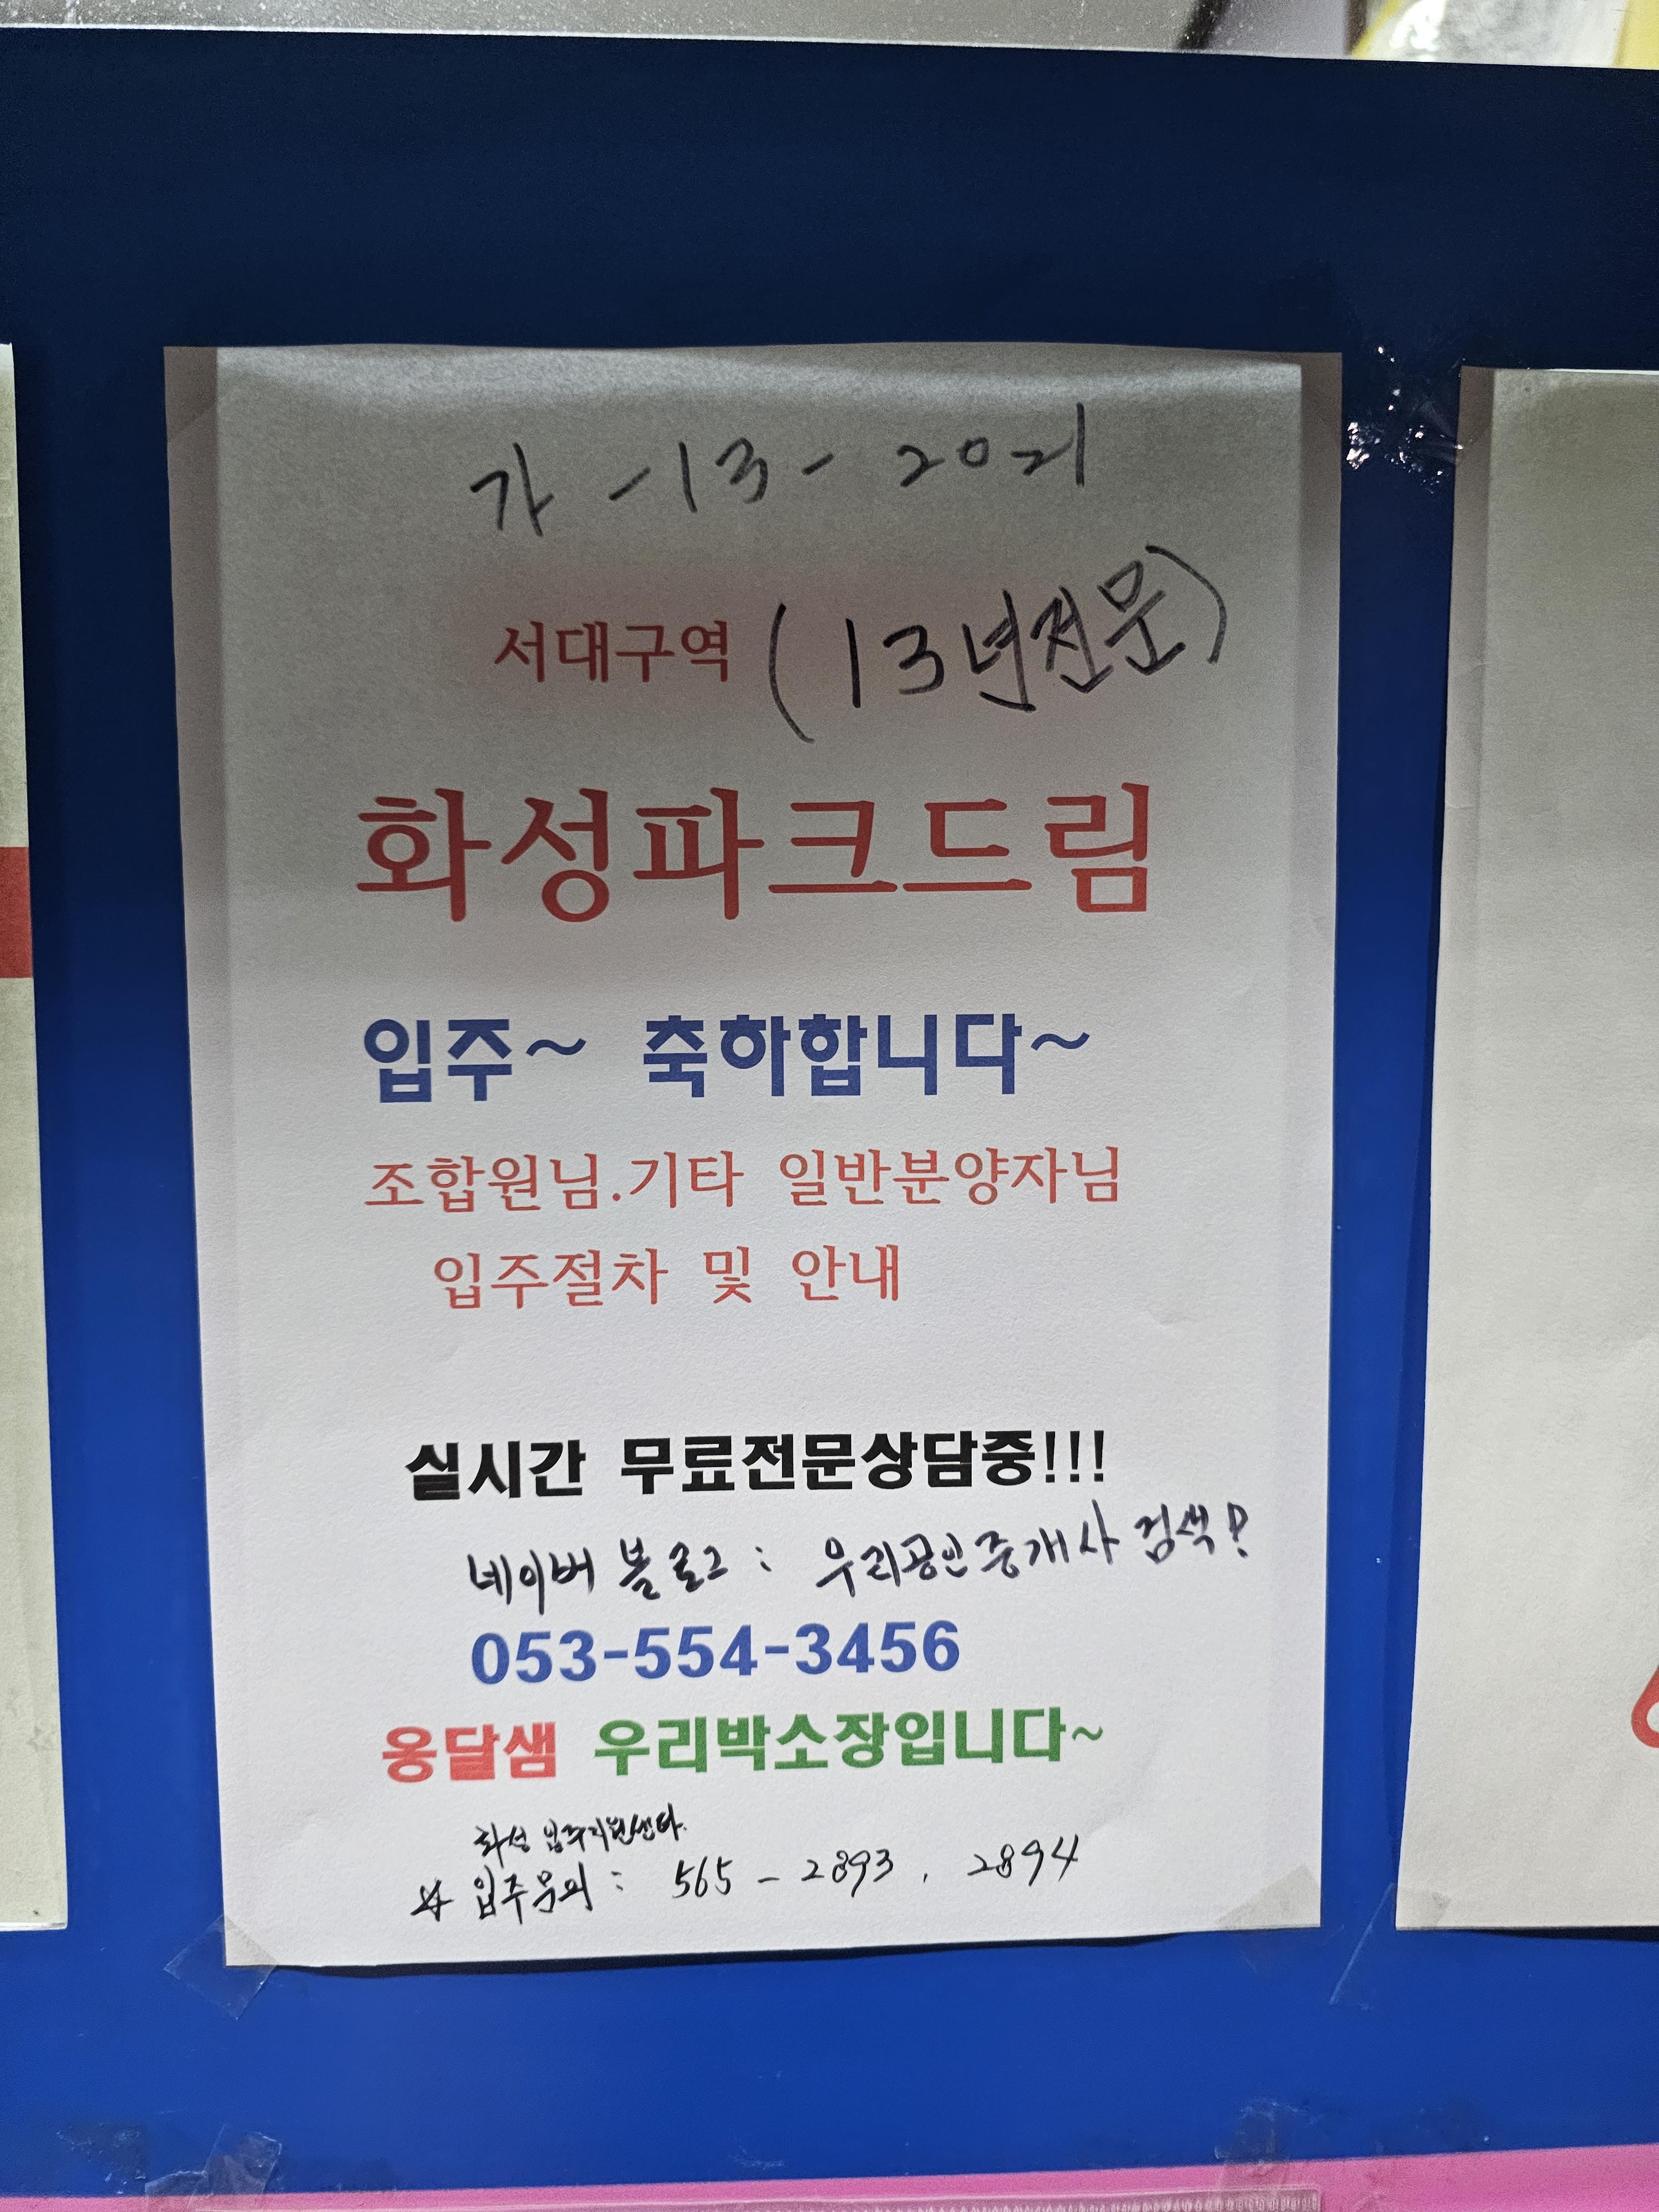 가 - 13 - 2021
서대구역 (13년전문)
화성파크드림
입주~ 축하합니다~
조합원님.기타 일반분양자님
입주절차 및 안내
실시간 무료전문상담중!!!
네이버 블로그 : 우리공인중개사 검색!
053-554-3456
옹달샘 우리박소장입니다~
화성 입주지원센타.
☆ 입주문의 : 565 - 2893 , 2894